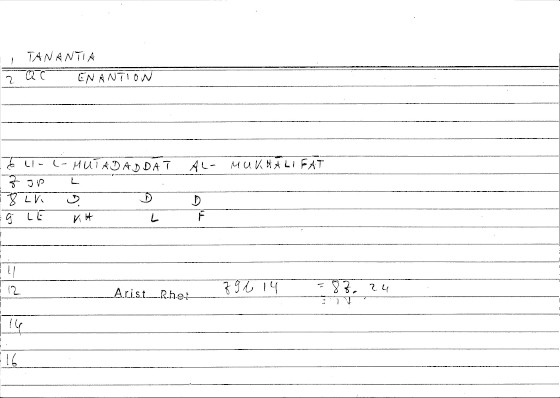 1 TANANTIA
2 QC ENANTION
6 LI- L- MUTADADDAT AL- MUKHĀLIFĀT
7 JP L
8 LK D D D
9 LE KH L F
11
12 Arist Rhet 1396 14 = 83. 24
14
16